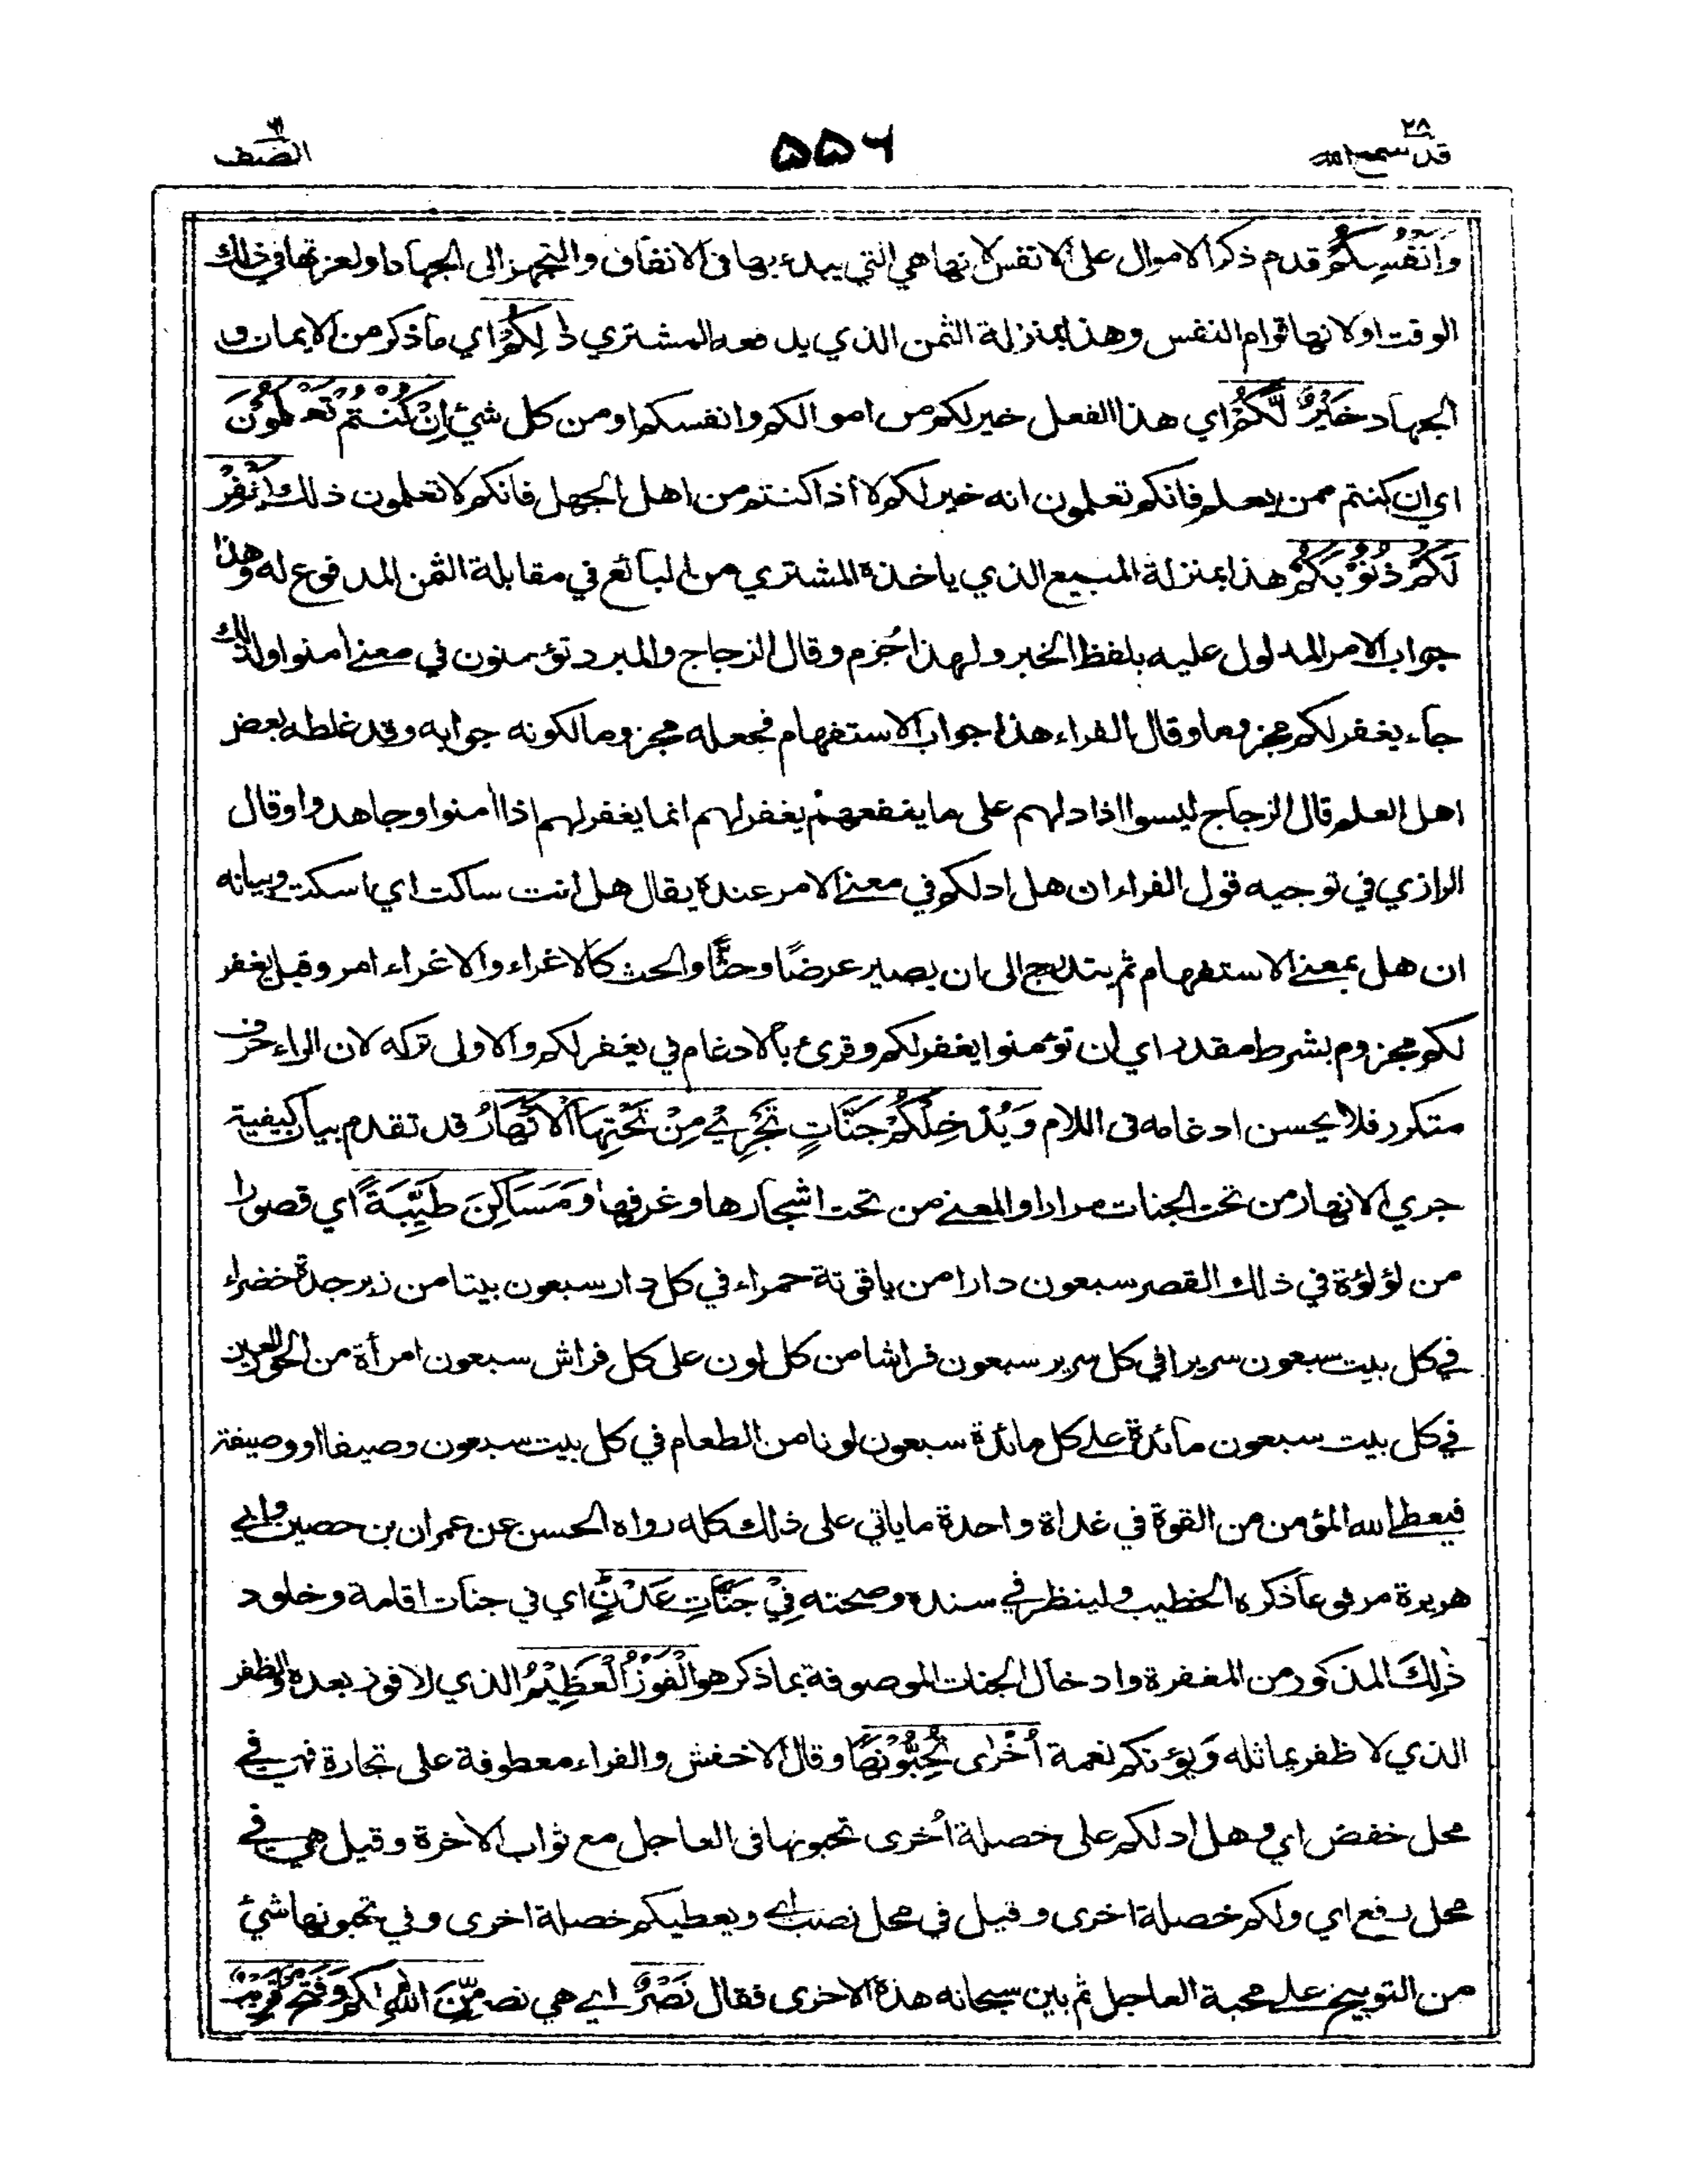 ٢٨
قد سمع الله
٥٥٦
الصّف
وَاَنْفُسِكُمْ قدم ذكر الاموال على الانفس لانها هي التي يبدء بها فى الانفاق والتجهز الى الجهاد او لعزتها في ذلك
الوقت او لانها قوام النفس وهذا بمنزلة الثمن الذي يدفعه المشتري ذٰلِكُمْ اي ما ذكر من الايمان و
الجهاد خَيْرٌ لَّكُمْ اي هذا الفعل خير لكم من اموالكم وانفسكم او من كل شيئ اِنْ كُنْتُمْ تَعْلَمُوْنَ
اي ان كنتم ممن يعلم فانكم تعلمون انه خير لكم لا اذا كنتم من اهل الجهل فانكم لا تعلمون ذلك يَغْفِرْ
لَكُمْ ذُنُوْبَكُمْ هذا بمنزلة المبيع الذي ياخذه المشتري من البائع في مقابلة الثمن المدفوع له وهذا
جواب الامر المدلول عليه بلفظ الخبر ولهذا جُزم وقال الزجاج والمبرد تؤمنون في معنى اٰمنوا ولذلك
جاء يغفر لكم مجزوما وقال الفراء هذا جواب الاستفهام فجعله مجزوما لكونه جوابه وقد غلطه بعض
اهل العلم قال الزجاج ليسوا اذا دلهم على ما ينفعهم يغفر لهم انما يغفر لهم اذا اٰمنوا وجاهدوا وقال
الرازي في توجيه قول الفراء ان هل ادلكم في معنى الامر عنده يقال هل انت ساكت اي اسكت وبيانه
ان هل بمعنى الاستفهام ثم يتدرج الى ان يصير عرضًا وحثًّا والحث كالاغراء والاغراء امر وقيل يغفر
لكم مجزوم بشرط مقدر اي ان تؤمنوا يغفر لكم وقرئ بالادغام في يغفر لكم والاولى تركه لان الراء حرف
متكرر فلا يحسن ادغامه فى اللام وَيُدْخِلْكُمْ جَنَّاتٍ تَجْرِيْ مِنْ تَحْتِهَا الْاَنْهَارُ قد تقدم بيان كيفية
جري الانهار من تحت الجنات مرارا والمعنى من تحت اشجارها وغرفها وَمَسَاكِنَ طَيِّبَةً اي قصورا
من لؤلؤة في ذلك القصر سبعون دارا من ياقوتة حمراء في كل دار سبعون بيتا من زبرجدة خضراء
في كل بيت سبعون سريرا في كل سرير سبعون فراشا من كل لون على كل فراش سبعون امرأة من الحور العين
في كل بيت سبعون مائدة على كل مائدة سبعون لونا من الطعام في كل بيت سبعون وصيفا او وصيفة
فيعطي الله المؤمن من القوة في غداة واحدة ما ياتي على ذلك كله رواه الحسن عن عمران بن حصين وابي
هريرة مرفوعا ذكره الخطيب ولينظر في سنده وصحته فِيْ جَنَّاتِ عَدْنٍ اي في جنات اقامة وخلود
ذٰلِكَ المذكور من المغفرة وادخال الجنات الموصوفة بما ذكر هو الْفَوْزُ الْعَظِيْمُ الذي لا فوز بعده والظفر
الذي لا ظفر يماثله وَ يؤتكم نعمة اُخْرٰى تُحِبُّوْنَهَا وقال الاخفش والفراء معطوفة على تجارة فهي في
محل خفض اي وهل ادلكم على خصلة اُخرى تحبونها فى العاجل مع ثواب الاٰخرة وقيل هي في
محل رفع اي ولكم خصلة اخرى وقيل في محل نصب اي ويعطيكم خصلة اخرى وفي تحبونها شيئ
من التوبيخ على محبة العاجل ثم بين سبحانه هذه الاخرى فقال نَصْرٌ اي هي نصر مِّنَ اللهِ لكم وَفَتْحٌ قَرِيْبٌ